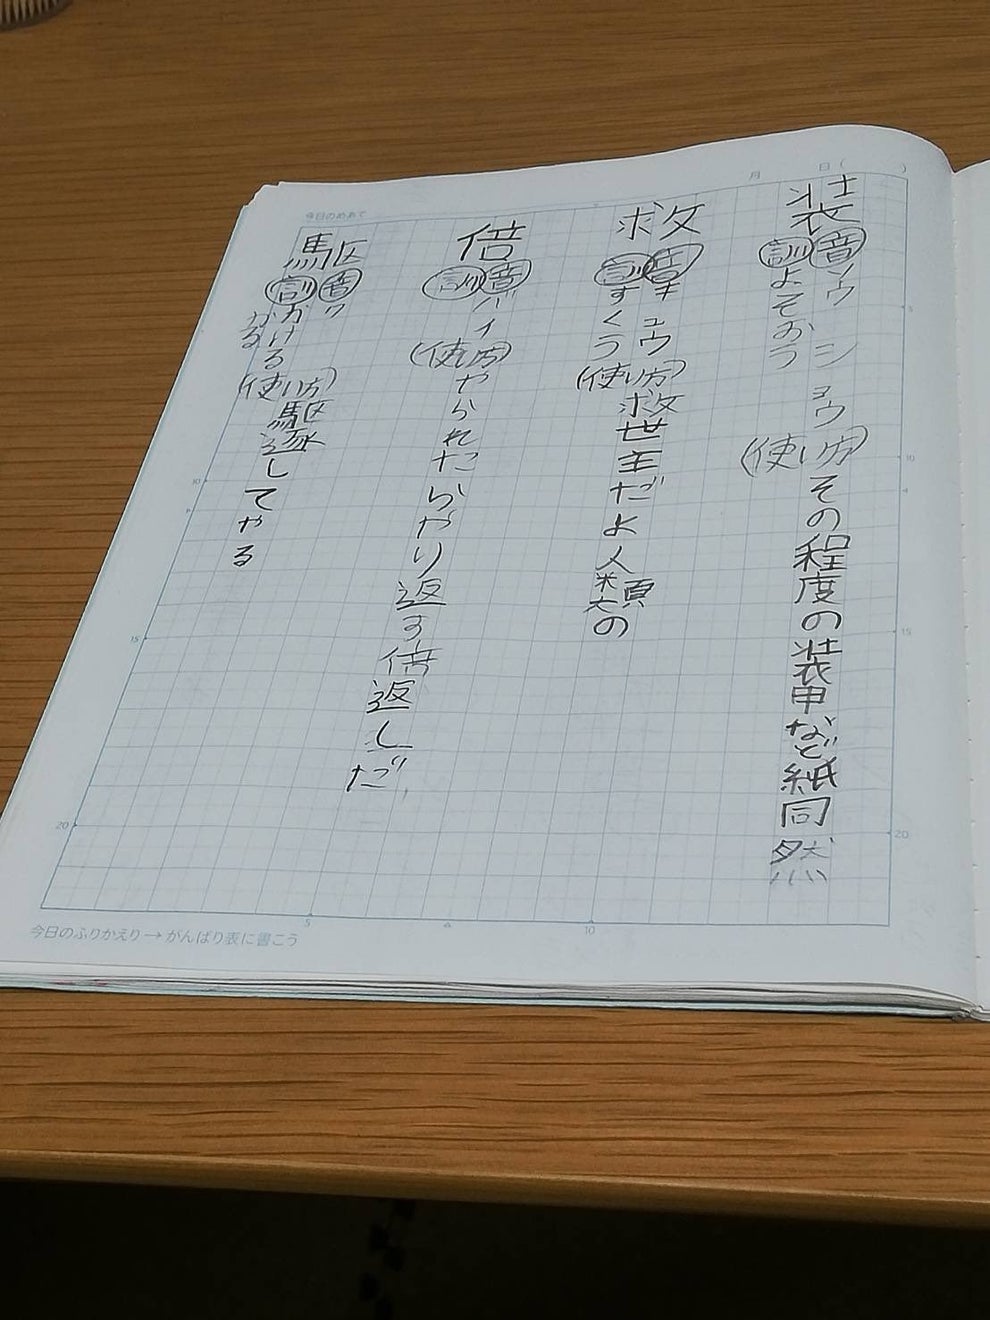 月 日 (
今日のめあて
装
音 ソウ ショウ
訓 よそおう
(使い方) その程度の装甲など紙同然
救
音 キュウ
訓 すくう
(使い方) 救世主だよ人類の
倍
音 バイ
訓
(使い方) やられたらやり返す倍返しだ
駆
音 ク
訓 かける
かる
(使い方) 駆逐してやる
5
10
15
20
5
10
15
20
5
10
今日のふりかえり→がんばり表に書こう